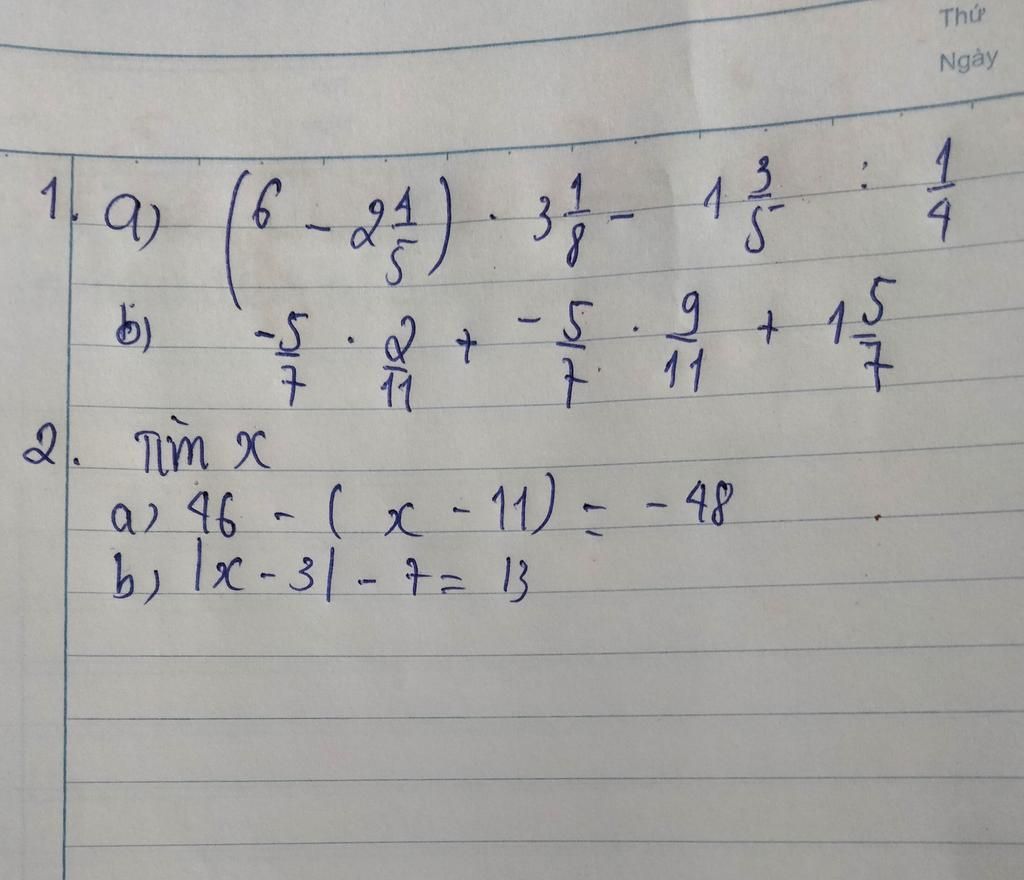 Thứ
Ngày
1. a) (6 - 2 1/5) . 3 1/8 - 1 3/5 : 1/4
b) -5/7 . 2/11 + -5/7 . 9/11 + 1 5/7
2. Tìm x
a) 46 - ( x - 11) = - 48
b) |x - 3| - 7 = 13